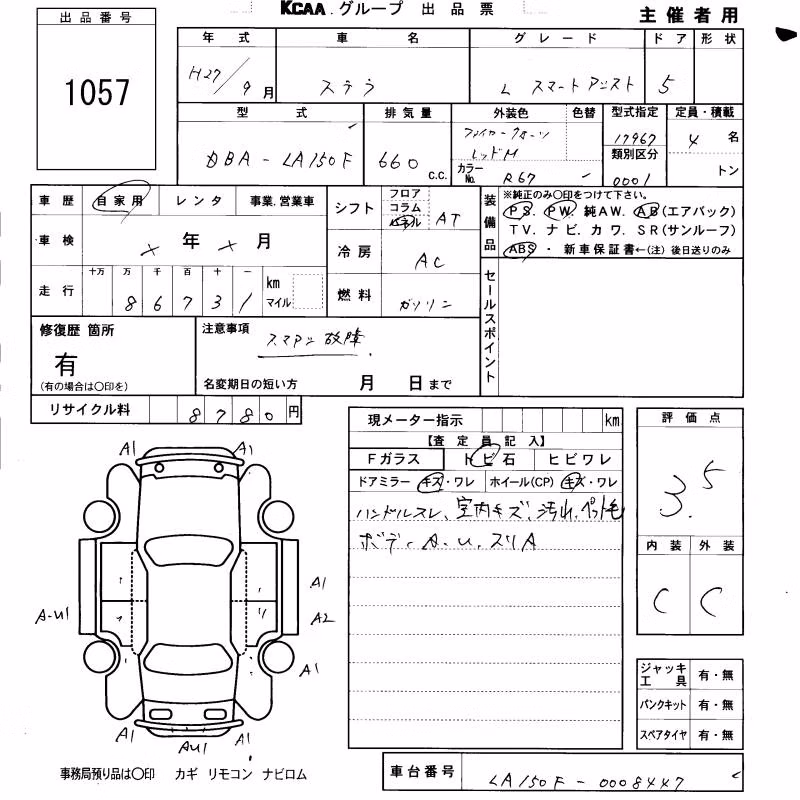 KCAA.グループ 出品票
主催者用
出品番号
1057
年式 車名 グレード ドア 形状
H27/9月 ステラ L スマートアシスト 5
型式 排気量 外装色 色替 型式指定 定員・積載
DBA-LA150F 660 c.c. レッドM 17967 4 名
類別区分
カラーNo. R67 0001 トン
車歴 自家用 レンタ 事業.営業車
シフト フロア コラム パネル AT
車検 × 年 × 月
冷房 AC
走行 十万 万 千 百 十 一 km マイル
8 6 7 3 1
燃料 ガソリン
装備品 ※純正のみ〇印をつけて下さい。
PS. PW. 純AW. AB(エアバック)
TV. ナビ. カワ. SR(サンルーフ)
ABS ・ 新車保証書←(注) 後日送りのみ
セールスポイント
修復歴 箇所
有
(有の場合は〇印を)
注意事項 スマアシ故障
名変期日の短い方 月 日まで
リサイクル料 8780円
現メーター指示 km
【査定員記入】
Fガラス トビ石 ヒビワレ
ドアミラー キズ・ワレ ホイール(CP) キズ・ワレ
ハンドルスレ、室内キズ、汚れ、ペット毛
ボディA.U.スリA
評価点
3.5
内装 外装
C C
A1 A1
A1
A-U1 A2
A1
A1 AU1 A1
ジャッキ工具 有・無
パンクキット 有・無
スペアタイヤ 有・無
事務局預り品は〇印 カギ リモコン ナビロム
車台番号 LA150F-0008447